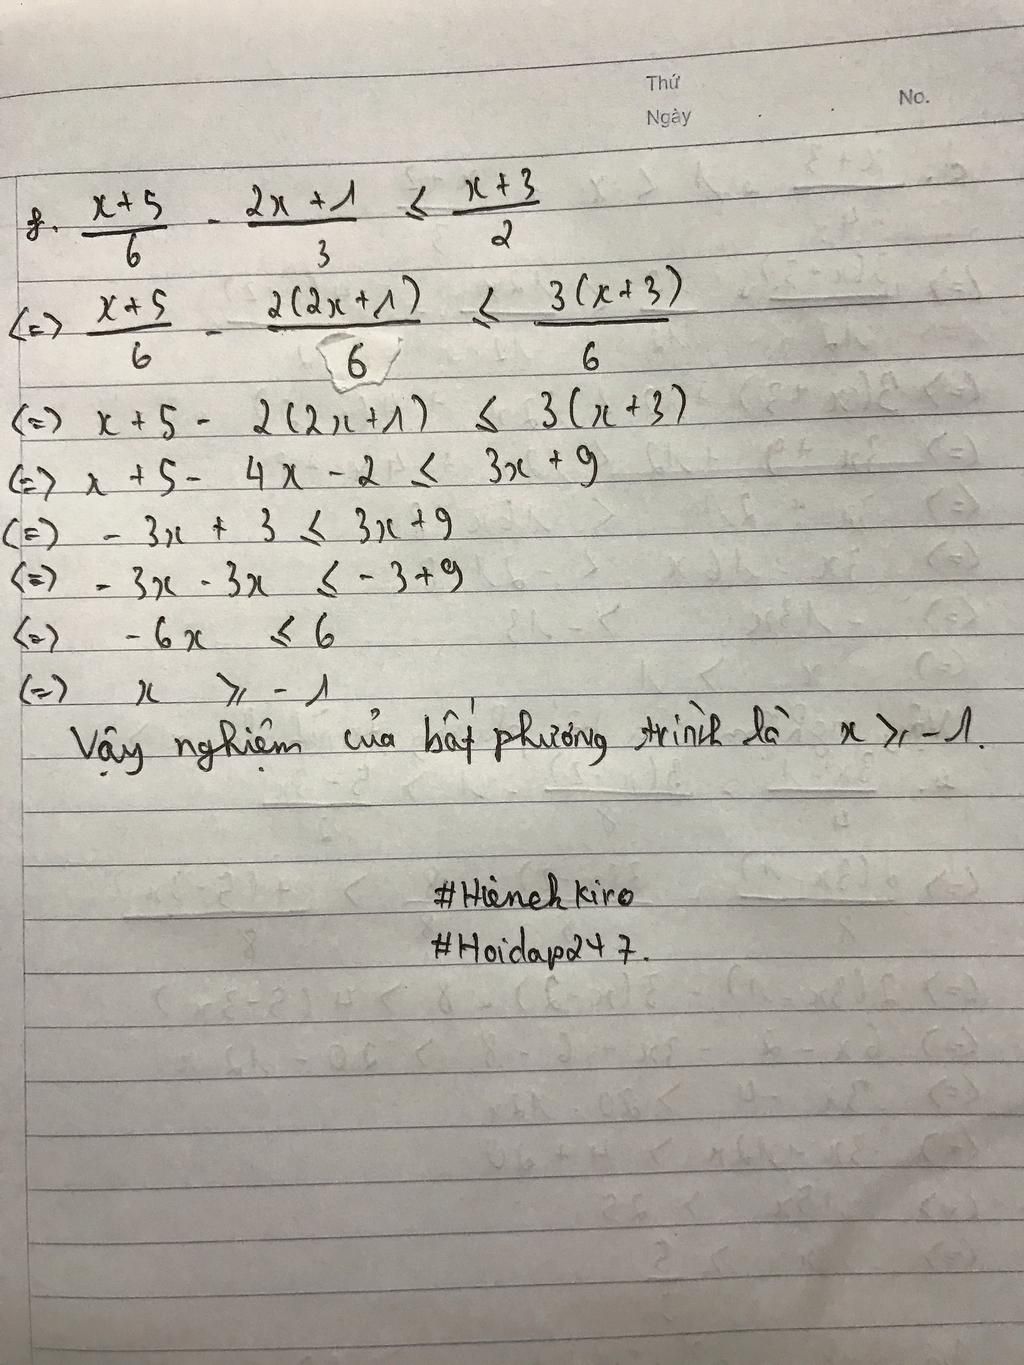 Thứ
Ngày
No.
f. x+5/6 - 2x+1/3 ≤ x+3/2
(=) x+5/6 - 2(2x+1)/6 ≤ 3(x+3)/6
(=) x+5 - 2(2x+1) ≤ 3(x+3)
(=) x+5 - 4x - 2 ≤ 3x+9
(=) - 3x + 3 ≤ 3x+9
(=) - 3x - 3x ≤ - 3+9
(=) - 6x ≤ 6
(=) x ≥ - 1
Vậy nghiệm của bất phương trình là x ≥ - 1.
#Hienehkiro
#Hoidap247.